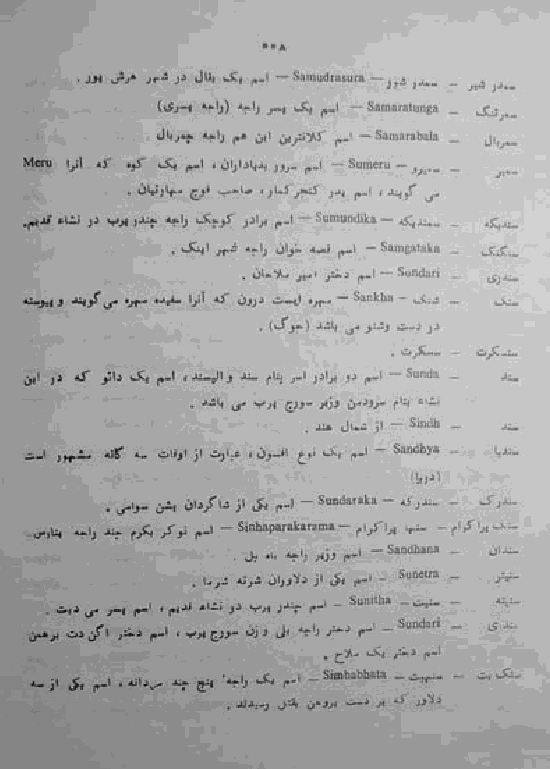 ۵۵۸
سمدر شیر — سمدر شور — Samudrasura — اسم یک بتال در شهر هرش پور .
سمرتنگ — Samaratunga — اسم یک پسر راجه (راجه پسری)
سمربال — Samarabala — اسم کلانترین این هم راجه چدربال .
سمیر — سمیرو — Sumeru — اسم سرور بدیاداران ، اسم یک کوه که آنرا Meru
می گویند ، اسم پدر کنجرکمار ، صاحب فوج مهاونیان .
سندیکه — سمندیکه — Sumundika — اسم برادر کوچک راجه چندرپرب در نشاء قدیم.
سنگتک — Samgataka — اسم قصه خوان راجه شهر اینک .
سندری — Sundari — اسم دختر امیر سلاحان .
سنک — شنک — Sankha — مهره ایست درون که آنرا سفیده مهره می گویند و پیوسته
در دست وشنو می باشد (جوگ) .
سنسکرت — سسکرت .
سند — Sunda — اسم دو برادر اسر بنام سند و اپسند ، اسم یک دانو که در این
نشاء بنام سرودمن وزیر سورج پرب می باشد .
سند — Sindh — از شمال هند .
سندیا — Sandhya — اسم یک نوع افسون ، عبارت از اوقات سه گانه مشهور است
(دریا)
سندرک — سندرکه — Sundaraka — اسم یکی از شاگردان بشن سوامی .
سنک پراکرام — سنها پراکرام — Sinhaparakarama — اسم نوکر بکرم چند راجه بنارس.
سندان — Sandhana — اسم وزیر راجه باه بل .
سنیتر — Sunetra — اسم یکی از دلاوران شرته شرما .
سنیته — سنیت — Sunitha — اسم چندر پرب دو نشاء قدیم ، اسم پسر می دیت .
سندری — Sundari — اسم دختر راجه بلی و زن سورج پرب ، اسم دختر اگن دت برهمن
اسم دختر یک سلاح .
سنک بت — سنهبت — Simhabhata — اسم یک راجه' پنج چند مردانه ، اسم یکی از سه
دلاور که بر دست بروهن بقتل رسیدند .